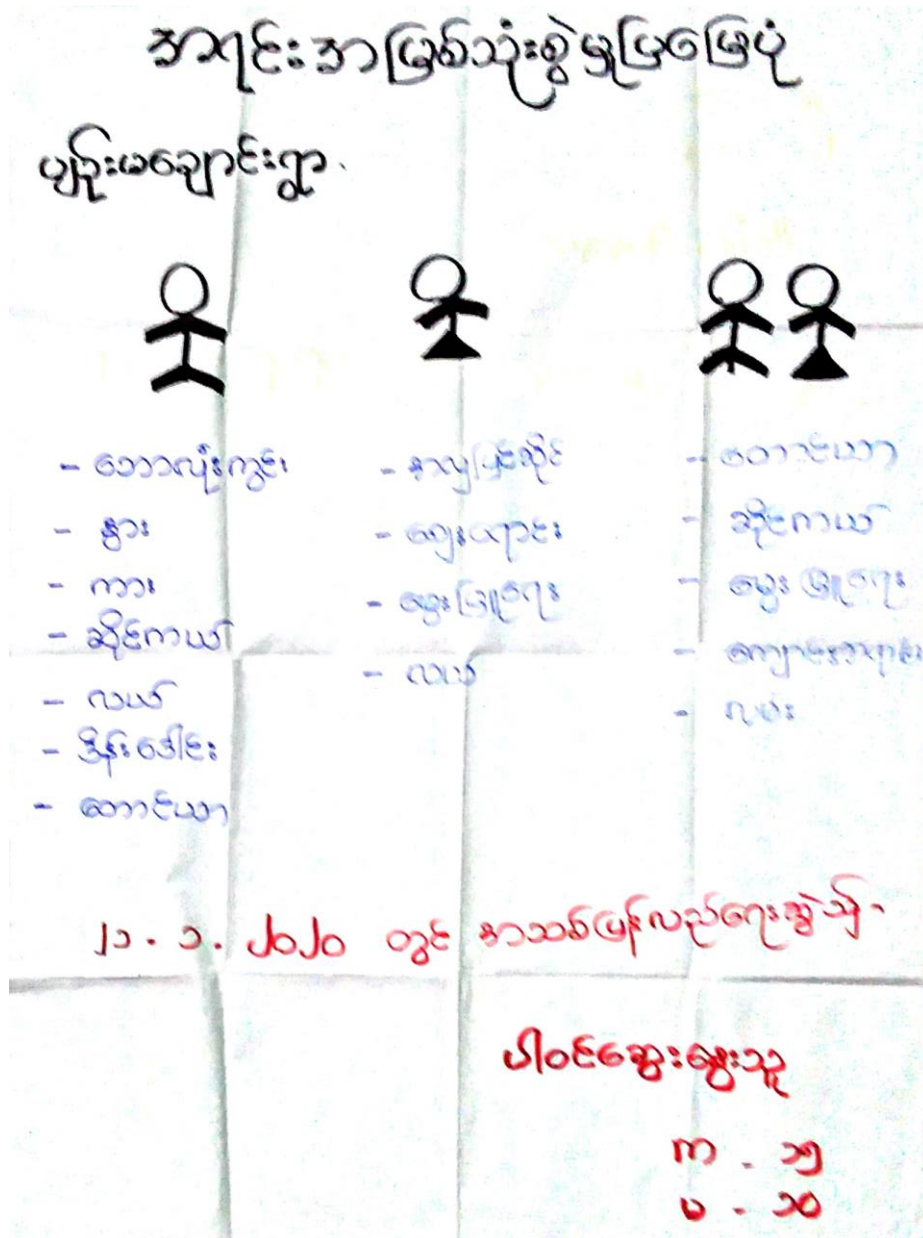 အရင်းအမြစ်သုံးစွဲမှုပြမြေပုံ
ပျဉ်းမချောင်းရွာ.
- ဘောလုံးကွင်း
- နွား
- ကား
- ဆိုင်ကယ်
- လယ်
- ဒိန်းဒေါင်း
- တောင်ယာ
- အလှပြင်ဆိုင်
- ဈေးရောင်း
- မွေးမြူရေး
- လယ်
- တောင်ယာ
- ဆိုင်ကယ်
- မွေးမြူရေး
- ကျောင်းဆရာ
- လမ်း
၂၁.၁.၂၀၂၀ တွင် အသစ်ပြန်လည်ရေးဆွဲသည်-
ပါဝင်ဆွေးနွေးသူ
က - ၁၅
မ - ၁၀